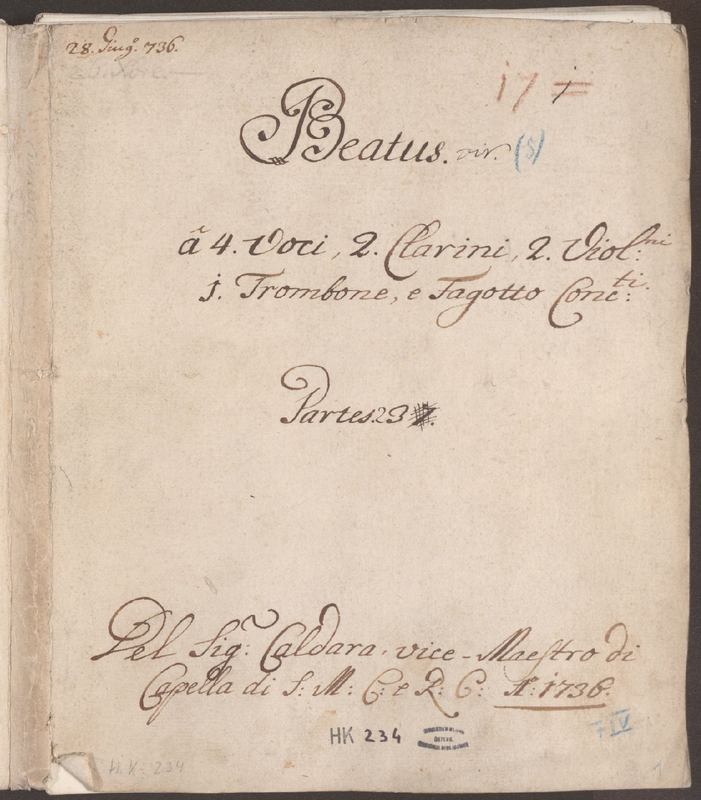 28. Giug.º 736.
17
Beatus. vir. (8)
â 4. Voci, 2. Clarini, 2. Viol:ni
j. Trombone, e Fagotto Conc:ti.
Partes. 23
Del Sig.r Caldara. vice-Maestro di
Capella di S: M: C: e R: C: A: 1736.
HK 234
IV
H.K. 234
1